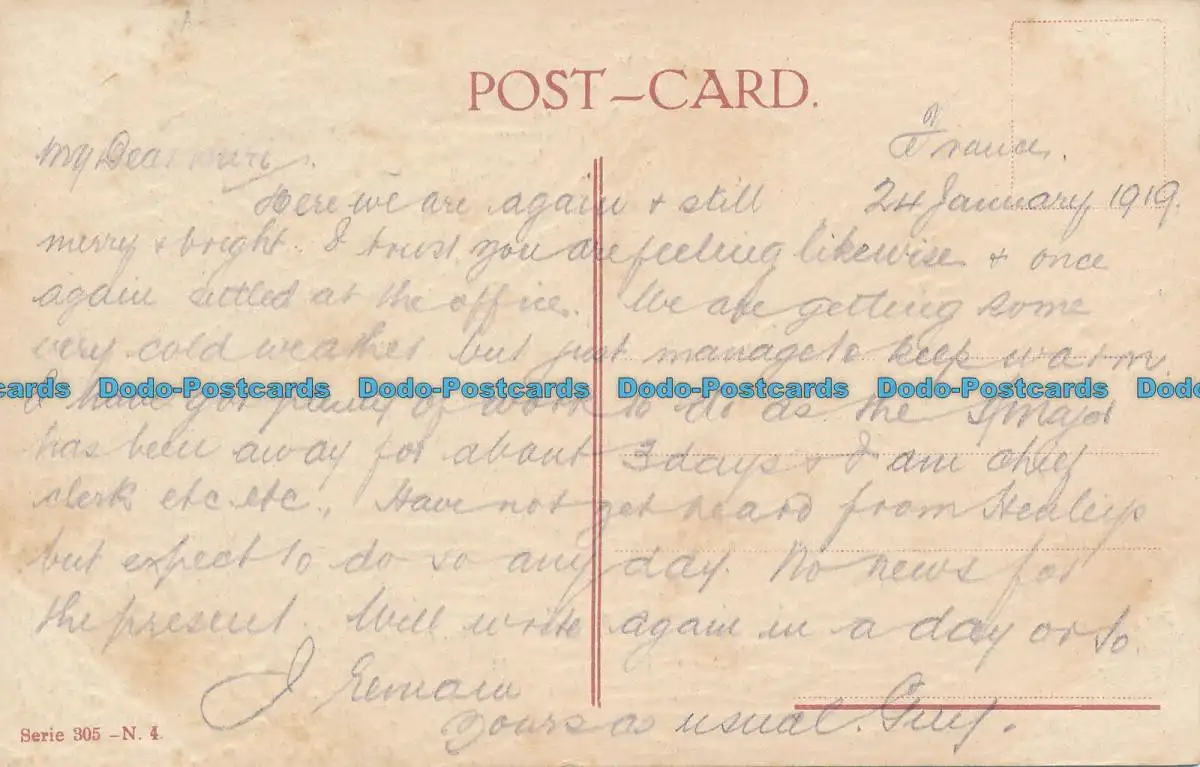 POST-CARD.
France.
24 January 1919.
My Dear
Here we are again & still
merry & bright. I trust you are feeling likewise & once
again settled at the office. We are getting some
very cold weather but just manage to keep warm.
Dodo-Postcards Dodo-Postcards Dodo-Postcards Dodo-Postcards
I have got plenty of work to do as the S/Major
has been away for about 3 days & I am chief
clerk etc etc. Have not yet heard from
but expect to do so any day. No news for
the present. Will write again in a day or so.
I Remain
Yours as usual.
Serie 305 - N. 4.